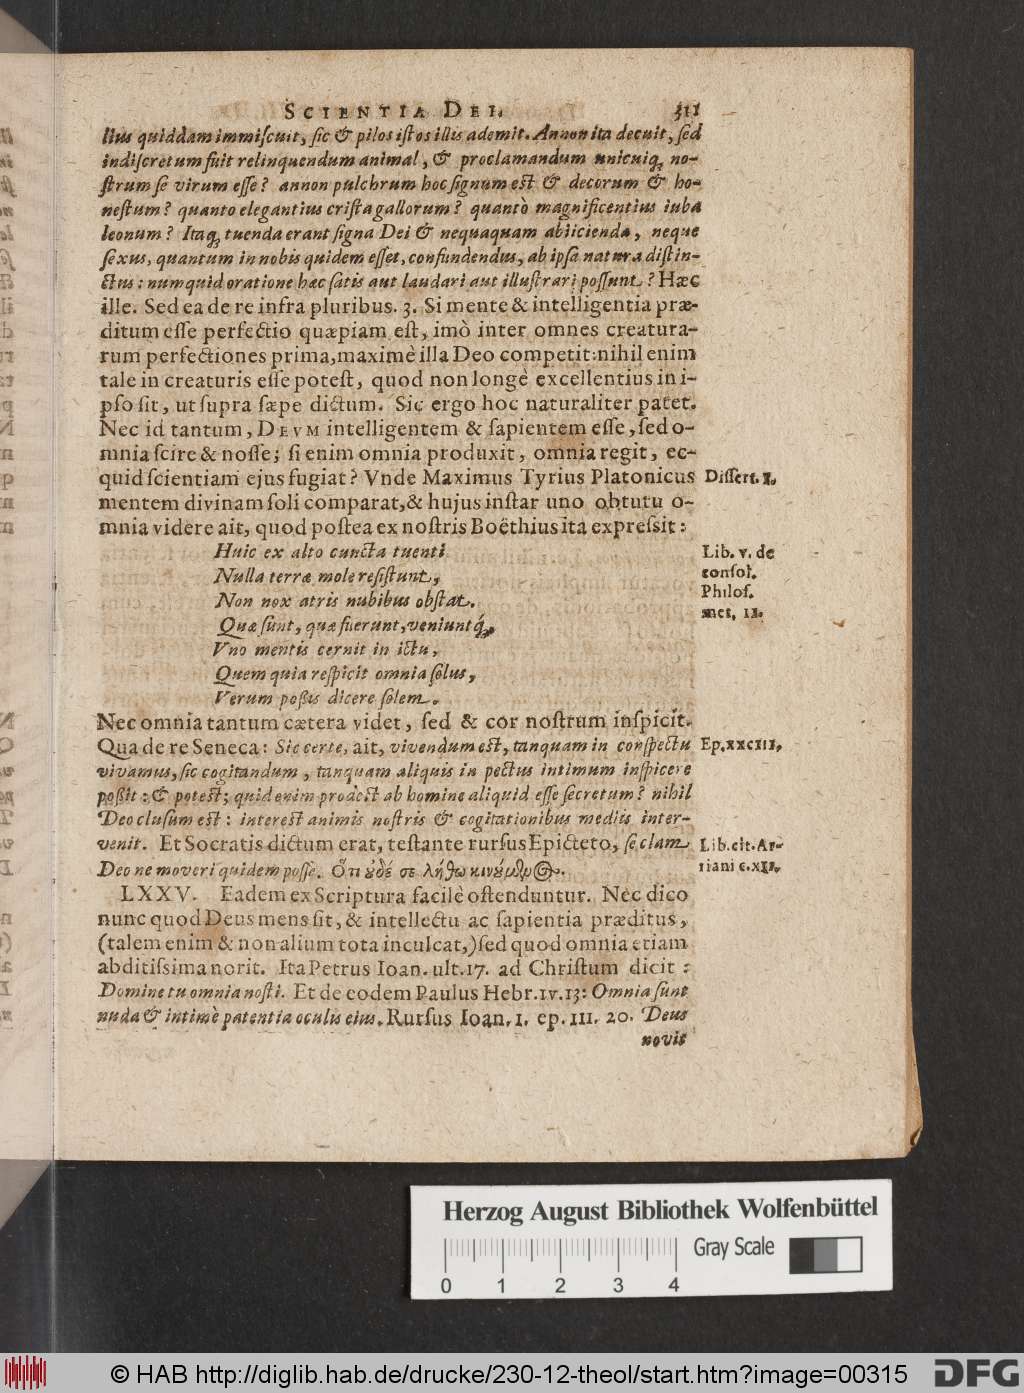 SCIENTIA DEI. 311
llius quiddam immiſcuit, ſic & pilos iſtos illis ademit. Annon ita decuit, ſed
indiſcretum fuit relinquendum animal, & proclamandum unicuiq; no-
ſtrum ſe virum eſſe? annon pulchrum hoc ſignum eſt & decorum & ho-
neſtum? quanto elegantius criſta gallorum? quantò magnificentius iuba
leonum? Itaq; tuenda erant ſigna Dei & nequaquam abiicienda, neque
ſexus, quantum in nobis quidem eſſet, confundendus, ab ipſa natura diſtin-
ctus: numquid oratione hæc ſatis aut laudari aut illuſtrari poſſunt? Hæc
ille. Sed ea de re infra pluribus. 3. Si mente & intelligentia præ-
ditum eſſe perfectio quæpiam eſt, imò inter omnes creatura-
rum perfectiones prima, maximè illa Deo competit: nihil enim
tale in creaturis eſſe poteſt, quod non longè excellentius in i-
pſo ſit, ut ſupra ſæpe dictum. Sic ergo hoc naturaliter patet.
Nec id tantum, DEVM intelligentem & ſapientem eſſe, ſed o-
mnia ſcire & noſſe; ſi enim omnia produxit, omnia regit, ec-
quid ſcientiam ejus fugiat? Vnde Maximus Tyrius Platonicus Diſſert. 1.
mentem divinam ſoli comparat, & hujus inſtar uno obtutu o-
mnia videre ait, quod poſtea ex noſtris Boëthius ita expreſsit:
Huic ex alto cuncta tuenti Lib. v. de
Nulla terræ mole reſiſtunt, conſol.
Non nox atris nubibus obſtat. Philoſ.
Quæ ſunt, quæ fuerunt, veniuntq́;, met, 11.
Vno mentis cernit in ictu,
Quem quia reſpicit omnia ſolus,
Verum poßis dicere ſolem.
Nec omnia tantum cætera videt, ſed & cor noſtrum inſpicit.
Qua de re Seneca: Sic certe, ait, vivendum eſt, tanquam in conſpectu Ep. xxciii,
vivamus, ſic cogitandum, tanquam aliquis in pectus intimum inſpicere
poßit: & poteſt; quid enim prodeſt ab homine aliquid eſſe ſecretum? nihil
Deo cluſum eſt: intereſt animis noſtris & cogitationibus mediis inter-
venit. Et Socratis dictum erat, teſtante rurſus Epicteto, ſe clam Lib. cit. Ar-
Deo ne moveri quidem poſſe. Ὅτι ȣ̓δέ σε λήθω κινȣ́μϑμος. riani c. XII.
LXXV. Eadem ex Scriptura facilè oſtenduntur. Nec dico
nunc quod Deus mens ſit, & intellectu ac ſapientia præditus,
(talem enim & non alium tota inculcat,) ſed quod omnia etiam
abditiſsima norit. Ita Petrus Ioan. ult. 17. ad Chriſtum dicit:
Domine tu omnia noſti. Et de eodem Paulus Hebr. IV. 13: Omnia ſunt
nuda & intimè patentia oculis eius. Rurſus Ioan. I. ep. III. 20. Deus
novit
Herzog August Bibliothek Wolfenbüttel
0 1 2 3 4 Gray Scale
© HAB http://diglib.hab.de/drucke/230-12-theol/start.htm?image=00315 DFG